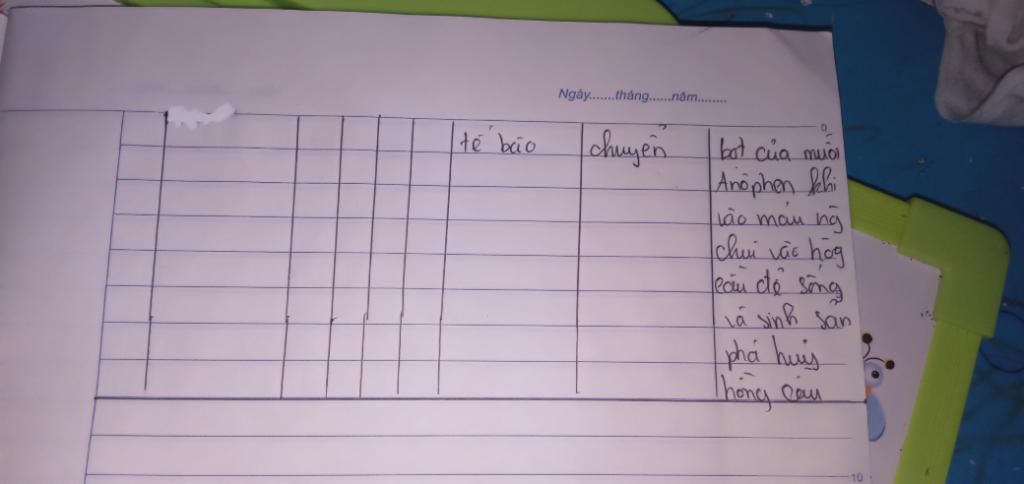 Ngày.......tháng......năm........
0
tế bào
chuyển
bọt của muỗi
Anôphen khi
vào máu ng
chui vào hồg
cầu để sống
và sinh sản
phá huỷ
hồng cầu
10